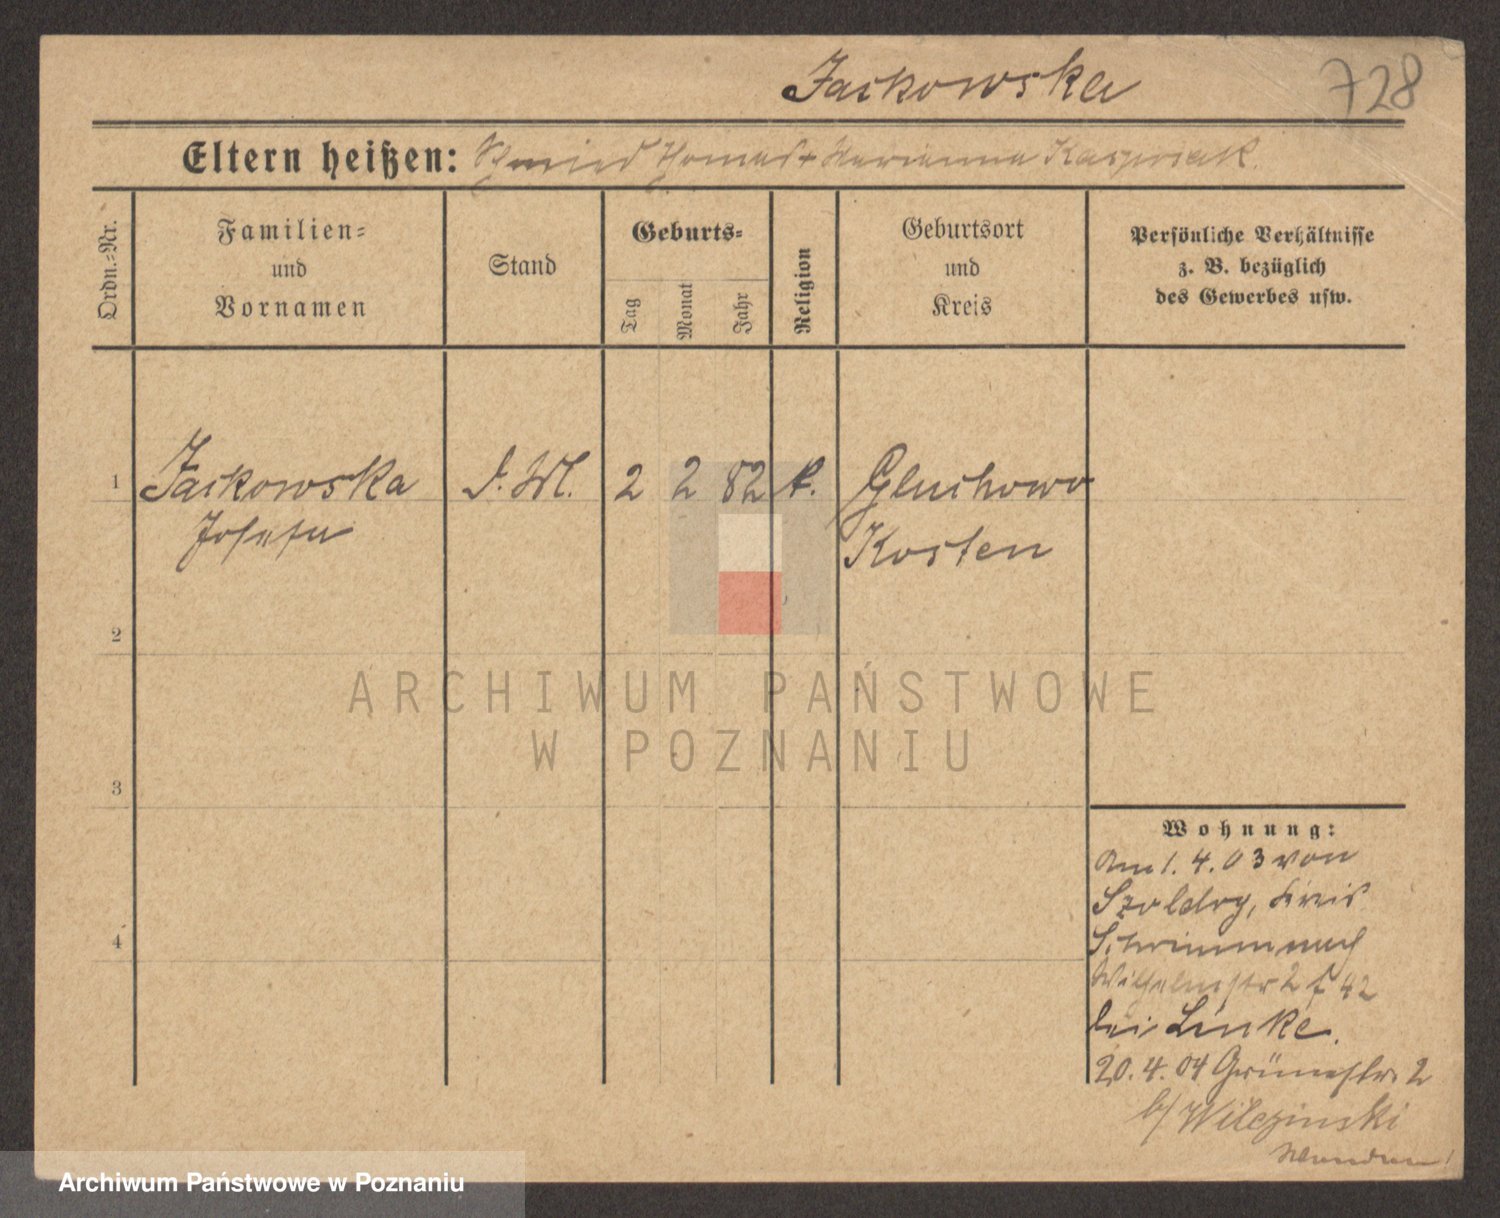 Jackowska
728
Eltern heißen: Schmied Thomas + Marianna Kasprzak.
Ordn.-Nr.
Familien-
und
Vornamen
Stand
Geburts-
Tag
Monat
Jahr
Religion
Geburtsort
und
Kreis
Persönliche Verhältnisse
z. B. bezüglich
des Gewerbes usw.
1 Jackowska 2 2 82 k. Gluchowo
Josefa Kosten
2
3
4
ARCHIWUM PAŃSTWOWE
W POZNANIU
Wohnung:
Am 1. 4. 03 von
Szoldry, Kreis
Schrimm nach
Wilhelmstr 2
bei Linke.
20. 4. 04 Grünestr. 2
b/ Wilczinski
Archiwum Państwowe w Poznaniu